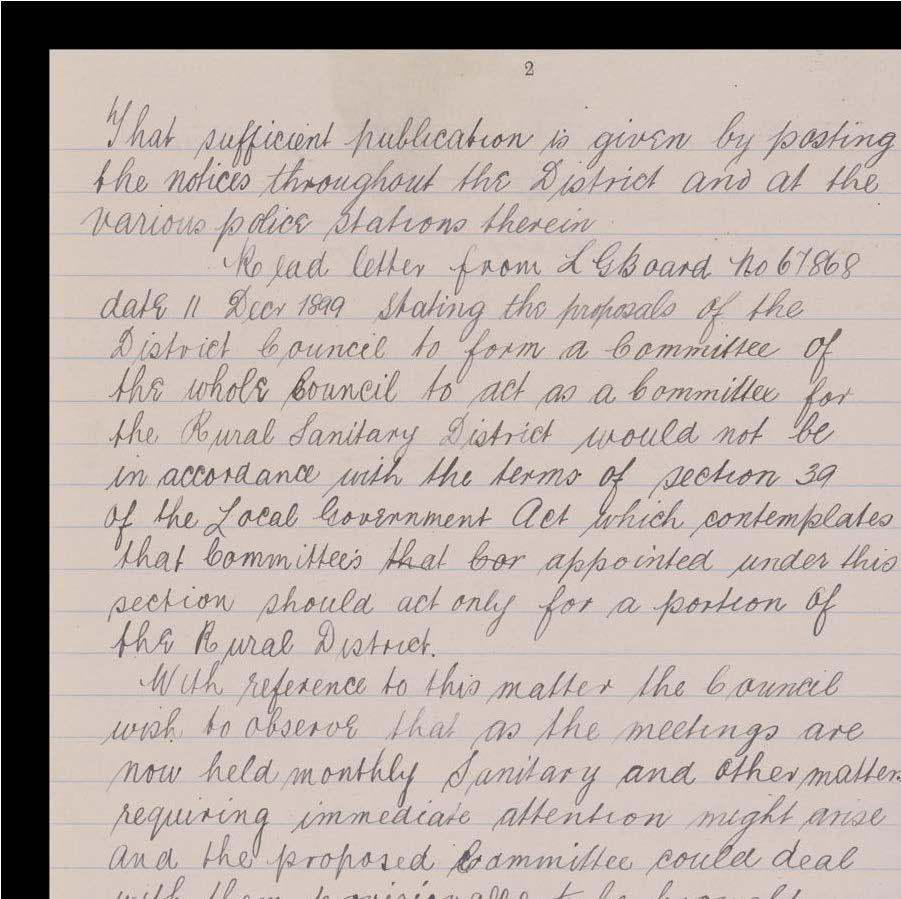 2
That sufficient publication is given by posting
the notices throughout the District and at the
various police stations therein
Read letter from L G Board No 67868
date 11 Decr 1899 stating the proposals of the
District Council to form a Committee of
the whole Council to act as a Committee for
the Rural Sanitary District would not be
in accordance with the terms of section 39
of the Local Government Act which contemplates
that Committee's that appointed under this
section should act only for a portion of
the Rural District.
With reference to this matter the Council
wish to observe that as the meetings are
now held monthly Sanitary and other matters
requiring immediate attention might arise
and the proposed Committee could deal
with them provisionally to be brought